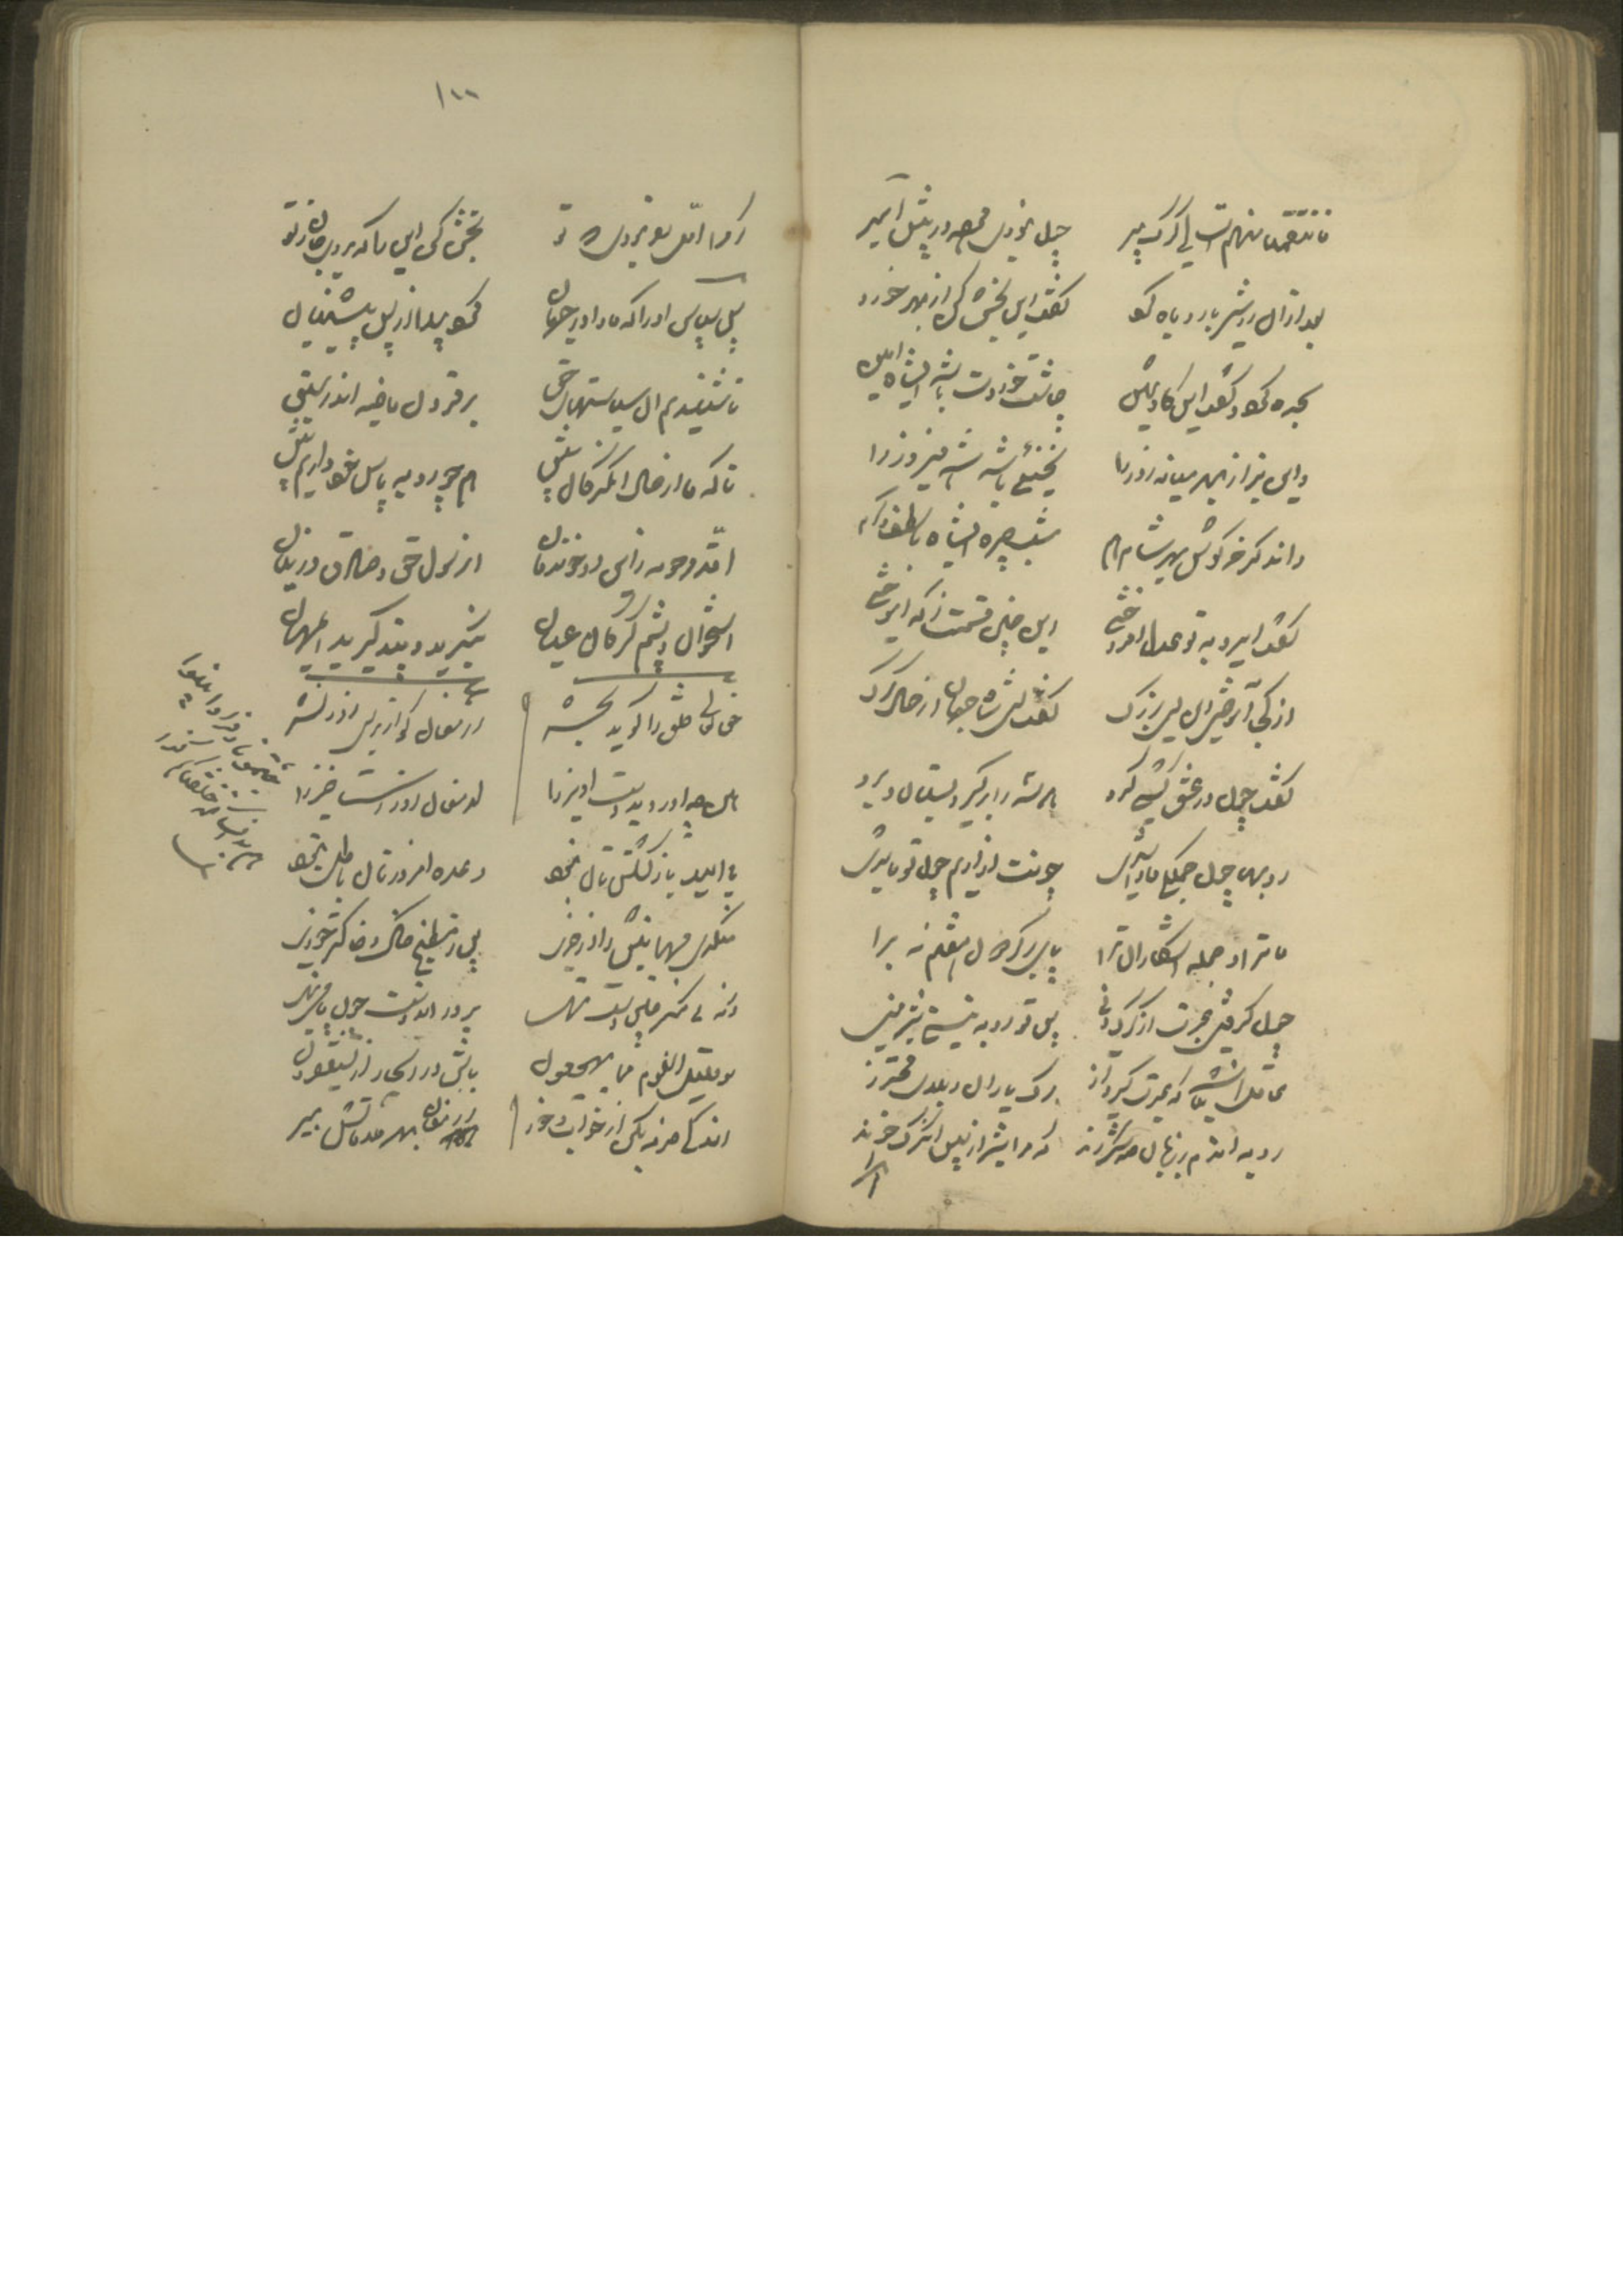 فانتقمنا منهم است ای گرگ پیر چون نبودی مرده در پیش امیر
بعد از آن رو شیر با روباه کرد گفت این را بخش کن از بهر خورد
سجده کرد و گفت این گاو سمین چاشت خوردت باشد ای شاه امین
واین بز از بهر میانه روز را یخنیی باشد شه فیروز را
واندگر خرگوش بهر شام هم شبچره ایشاه با لطف و کرم
گفت ای روبه تو عدل افروختی این چنین قسمت ز که آموختی
از کجا آموختی این ای بزرگ گفت ای شاه جهان از حال گرگ
گفت چون در عشق گشتی گرو هر سه را برگیر و بستان و برو
روبها چون جملگی ما را شدی چونت آزاریم چون تو ما شدی
ما ترا و جمله اشکاران ترا پای بر گردون هفتم نه برا
چون گرفتی عبرت از گرگ دنی پس تو روبه نیستی شیر منی
عاقل آن باشد که عبرت گیرد از مرگ یاران در بلای محترز
روبه اندم بر زبان صد شکر راند که مرا شیر از پس آن گرگ خواند
۱۰۰
گر مرا اول بفرمودی که تو بخش کن این را که بردی جان ازو
پس سپاس او را که ما را در جهان کرد پیدا از پس پیشینیان
تا شنیدیم آن سیاستهای حق بر قرون ماضیه اندر سبق
تا که ما از حال آن گرگان پیش همچو روبه پاس خود داریم بیش
امت مرحومه زاین رو خواندمان آن رسول حق و صادق در بیان
استخوان و پشم گرگان عیان بنگرید و پند گیرید ای مهان
حق تعالی خلق را گوید بحشر ارمغان کو از برای روز نشر
هین چه آوردید دست آویز را ارمغان روز رستاخیز را
یا امید بازگشتنتان نبود وعده امروزتان باطل نمود
منکری مهمانیش را از خری پس ز مطبخ خاک و خاکستر خوری
ورنه ای منکر چنین دست تهی بر در آن دوست چون پا مینهی
شو قلیل النوم مما یهجعون باش در اسحار از یستغفرون
اندکی صرفه بکن از خواب و خور ارمغان بهر ملاقاتش ببر